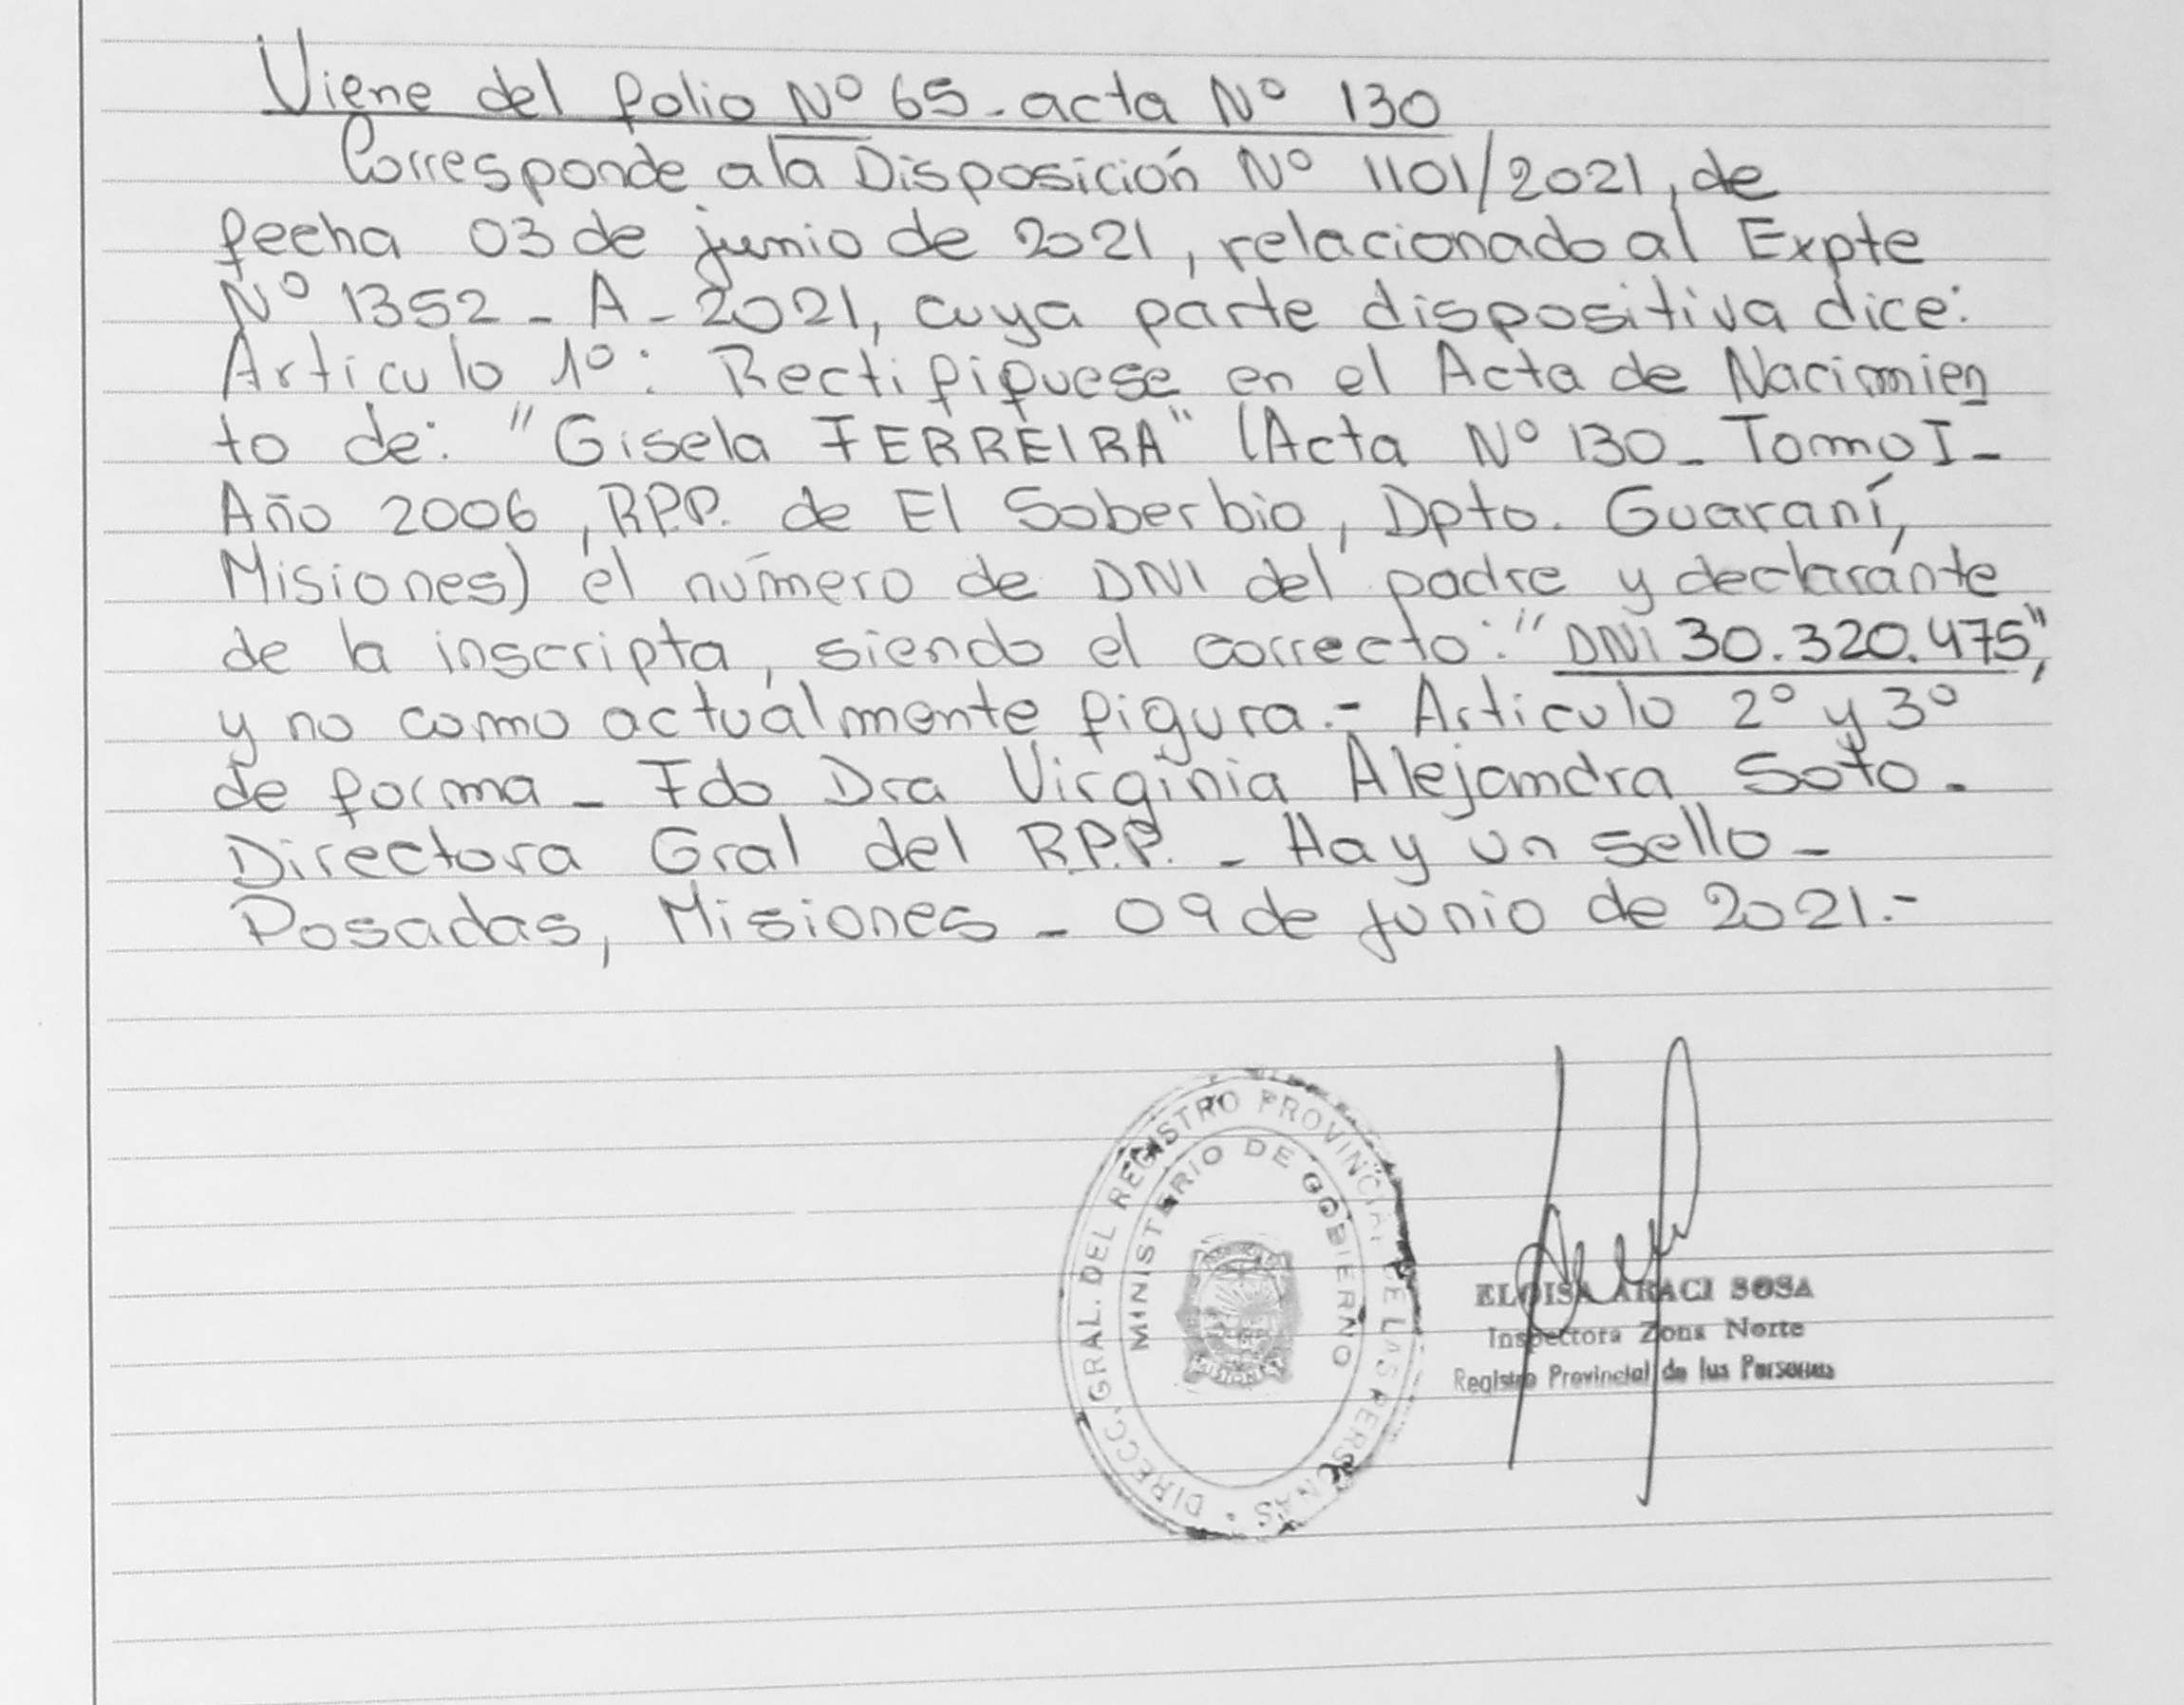 Viene del folio Nº 65- acta Nº 130
Corresponde a la Disposición Nº 1101/2021, de
fecha 03 de junio de 2021, relacionado al Expte
Nº 1352 - A - 2021, cuya parte dispositiva dice:
Articulo 1º: Rectifiquese en el Acta de Nacimien
to de: "Gisela FERREIRA" (Acta Nº 130- Tomo I-
Año 2006, R.P.P. de El Soberbio, Dpto. Guaraní,
Misiones) el número de DNI del padre y declarante
de la inscripta, siendo el correcto: "DNI 30.320.475",
y no como actualmente figura.- Articulo 2º y 3º
de forma - Fdo Dra Virginia Alejandra Soto.
Directora Gral del R.P.P. - Hay un sello -
Posadas, Misiones - 09 de junio de 2021.-
DIRECC. GRAL. DEL REGISTRO PROVINCIAL DE LAS PERSONAS
MINISTERIO DE GOBIERNO
MISIONES
ELOISA ARACI SOSA
Inspectora Zona Norte
Registro Provincial de las Personas